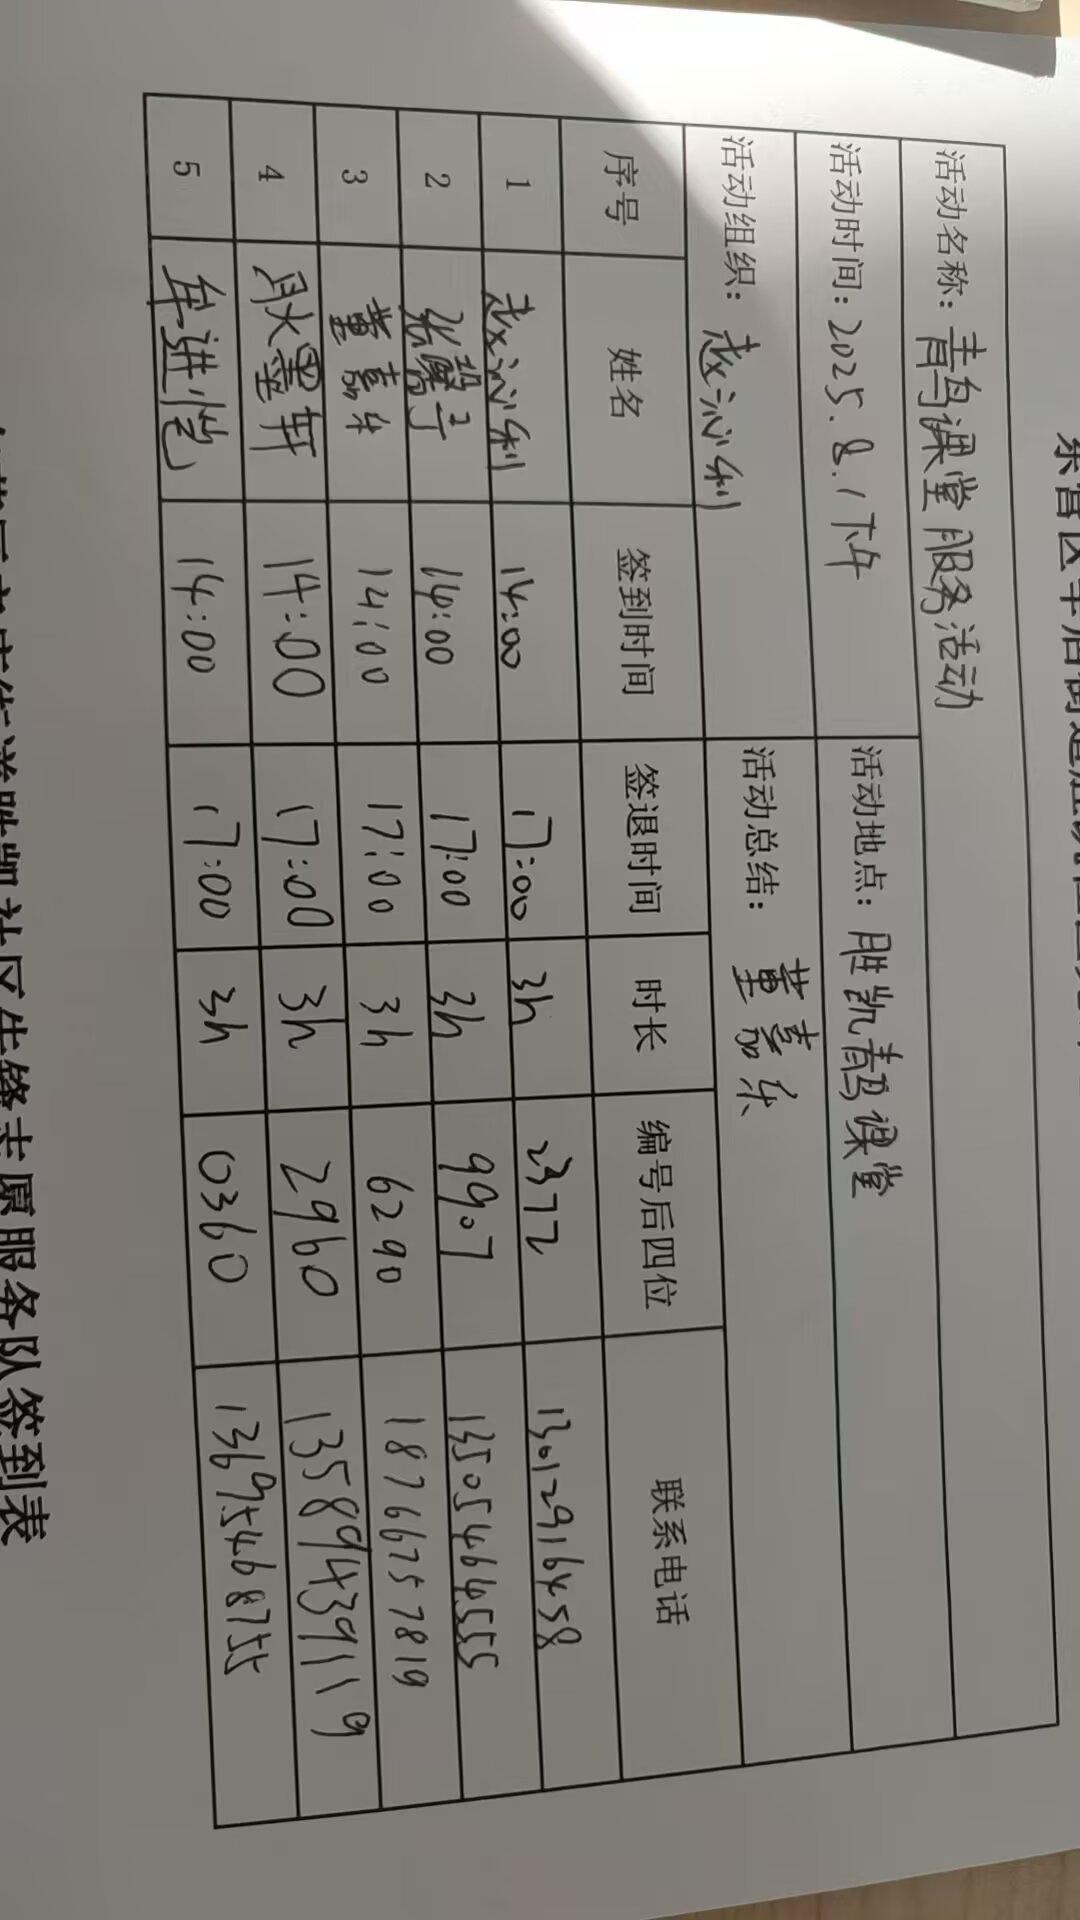 活动名称：青鸟课堂服务活动
活动时间：2025.8.1下午 活动地点：胜凯青鸟课堂
活动组织：赵沁利 活动总结：董嘉乐
序号 姓名 签到时间 签退时间 时长 编号后四位 联系电话
1 赵沁利 14:00 17:00 3h 2372 13012916458
2 14:00 17:00 3h 9907 13505464555
3 董嘉乐 14:00 17:00 3h 6290 18766757819
4 耿墨轩 14:00 17:00 3h 2960 13589439119
5 牟进 14:00 17:00 3h 0360 13695468755
胜凯社区先锋志愿服务队签到表